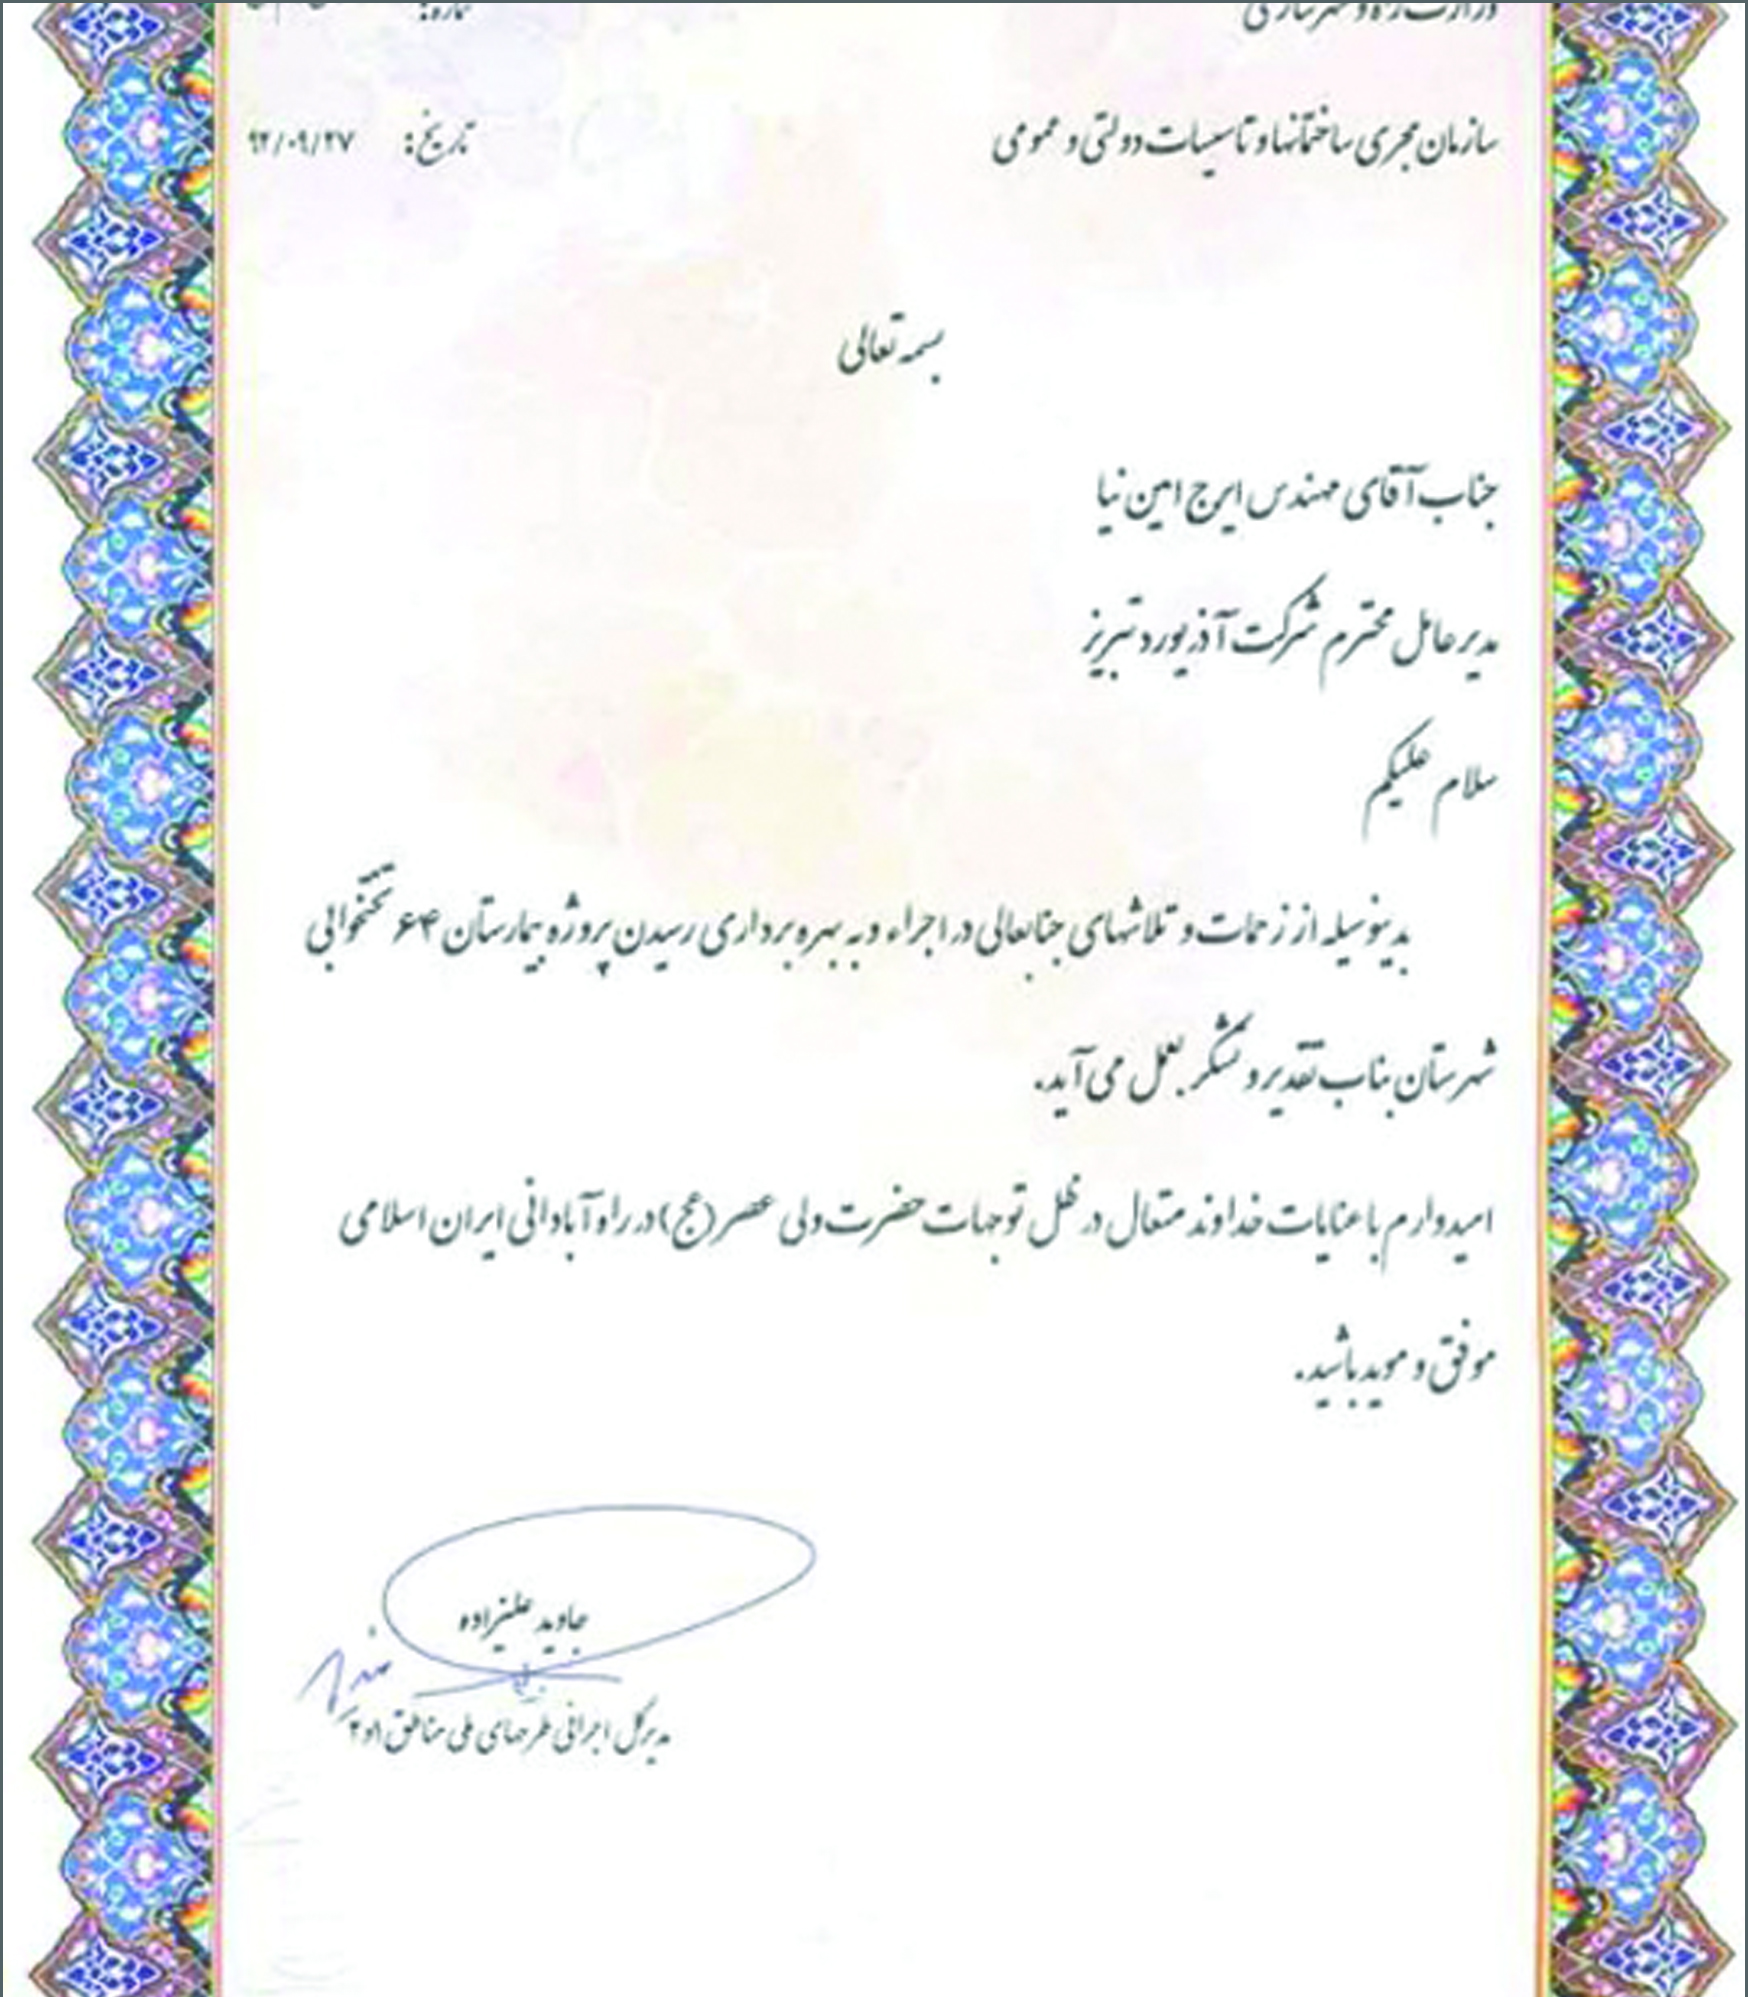 وزارت راه و شهرسازی
سازمان مجری ساختمانها و تاسیسات دولتی و عمومی
شماره:
تاریخ: ۹۲/۰۹/۲۷
بسمه تعالی
جناب آقای مهندس ایرج امین نیا
مدیر عامل محترم شرکت آذر بورد تبریز
سلام علیکم
بدینوسیله از زحمات و تلاشهای جنابعالی در اجراء و به بهره برداری رسیدن پروژه بیمارستان ۶۴ تختخوابی
شهرستان بناب تقدیر و تشکر بعمل می آید.
امیدوارم با عنایات خداوند متعال در ظل توجهات حضرت ولی عصر (عج) در راه آبادانی ایران اسلامی
موفق و موید باشید.
جاوید علیزاده
مدیر کل اجرائی طرحهای ملی مناطق ۱و۲